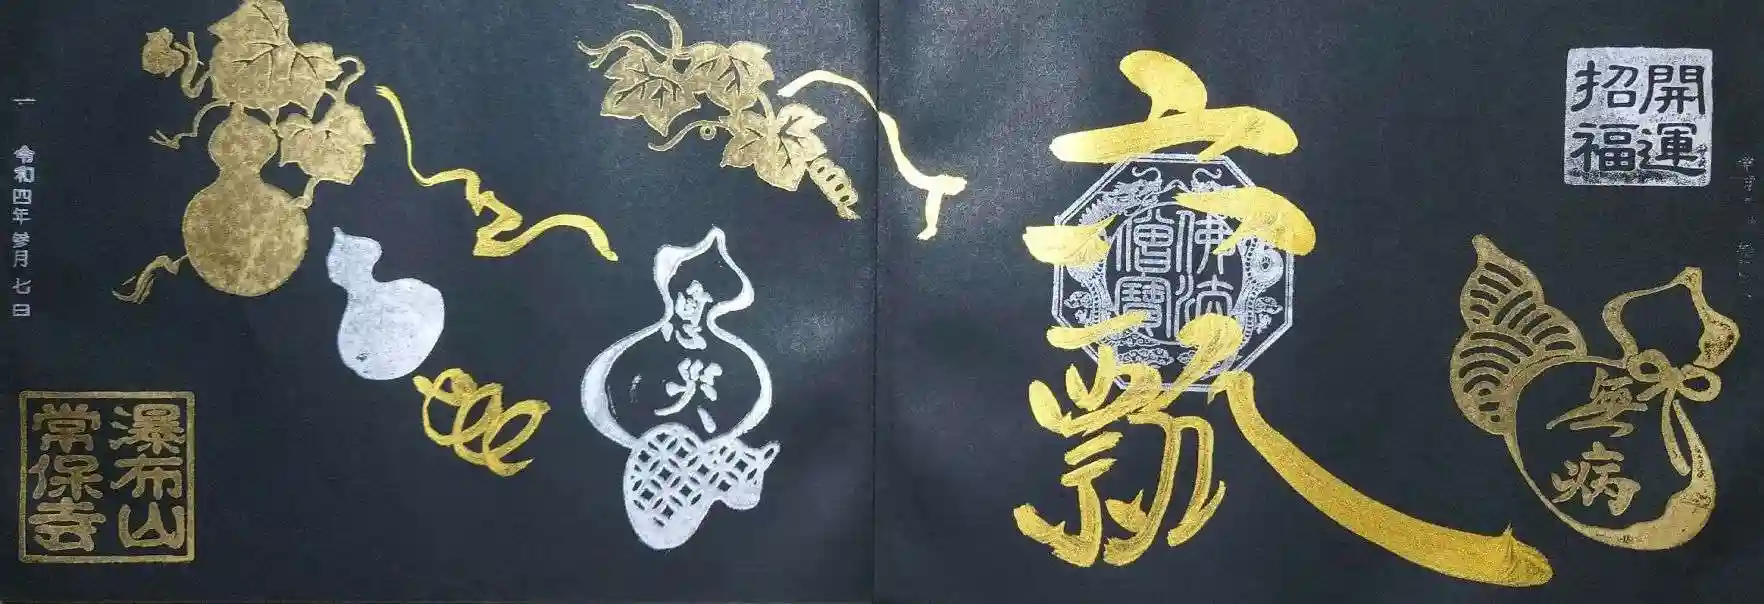 開運
招福
無病
六瓢
佛法
僧寳
息災
令和四年参月七日
瀑布山
常保寺